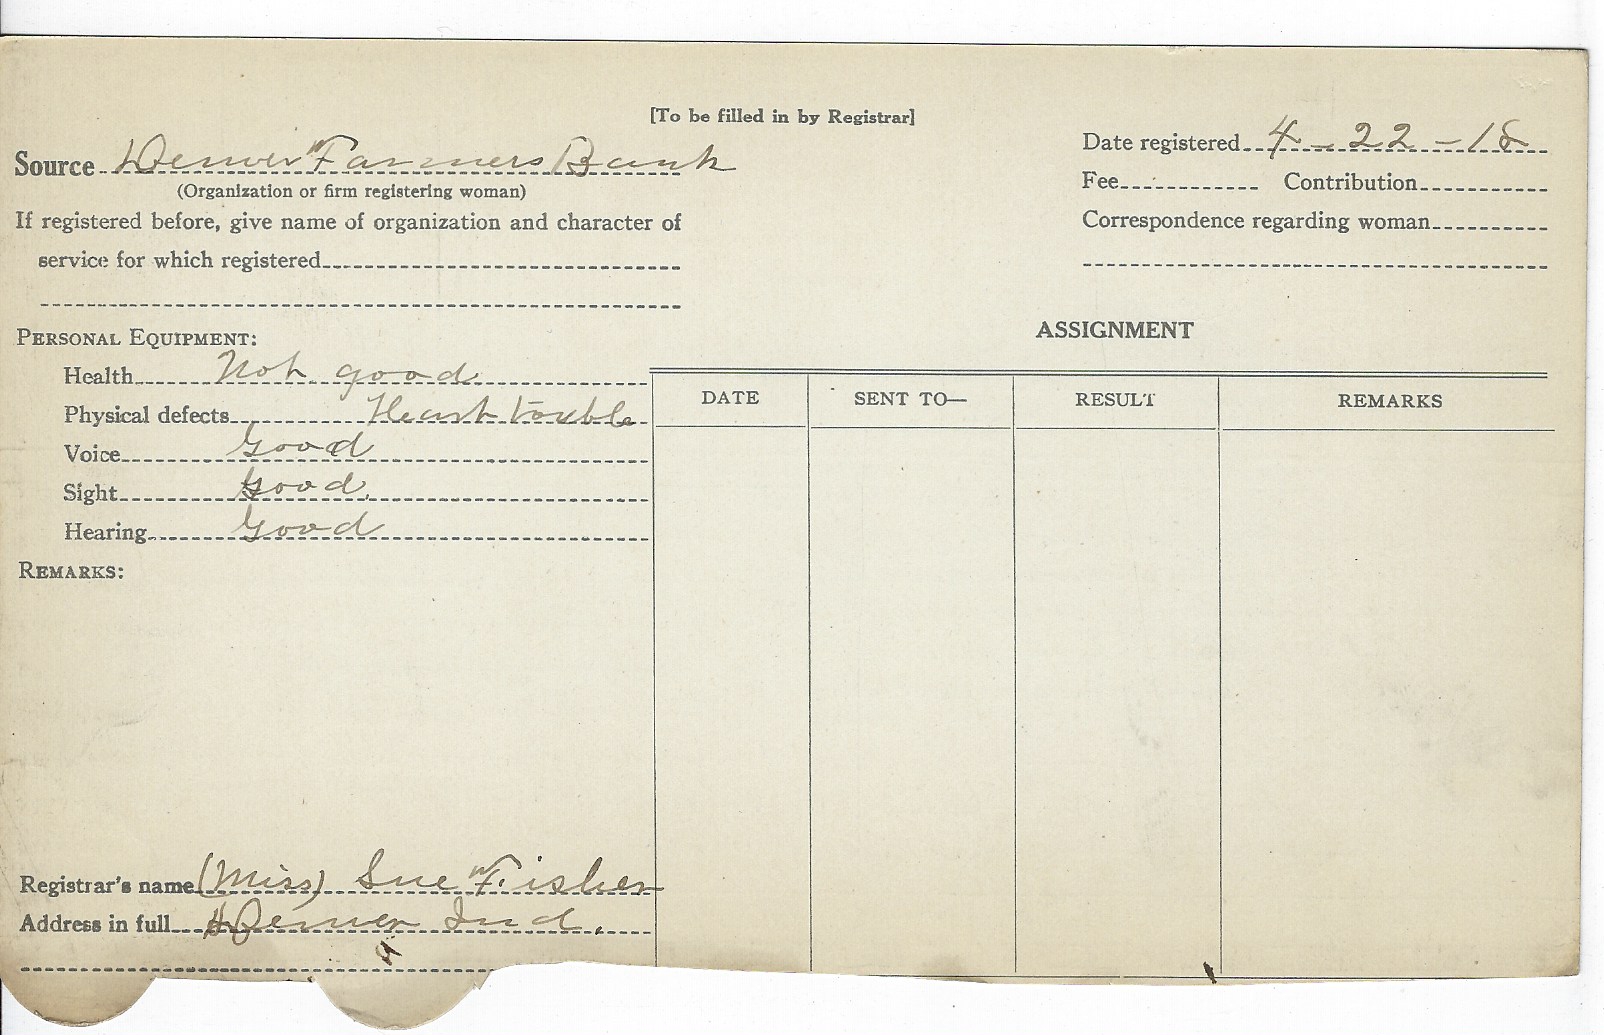 [To be filled in by Registrar]
Source Denver Farmers Bank
(Organization or firm registering woman)
If registered before, give name of organization and character of
service for which registered
Date registered 4-22-18
Fee Contribution
Correspondence regarding woman
PERSONAL EQUIPMENT:
Health Not good
Physical defects Heart trouble
Voice Good
Sight Good
Hearing Good
REMARKS:
ASSIGNMENT
DATE SENT TO— RESULT REMARKS
Registrar's name (Miss) Sue Fisher
Address in full Denver Ind.